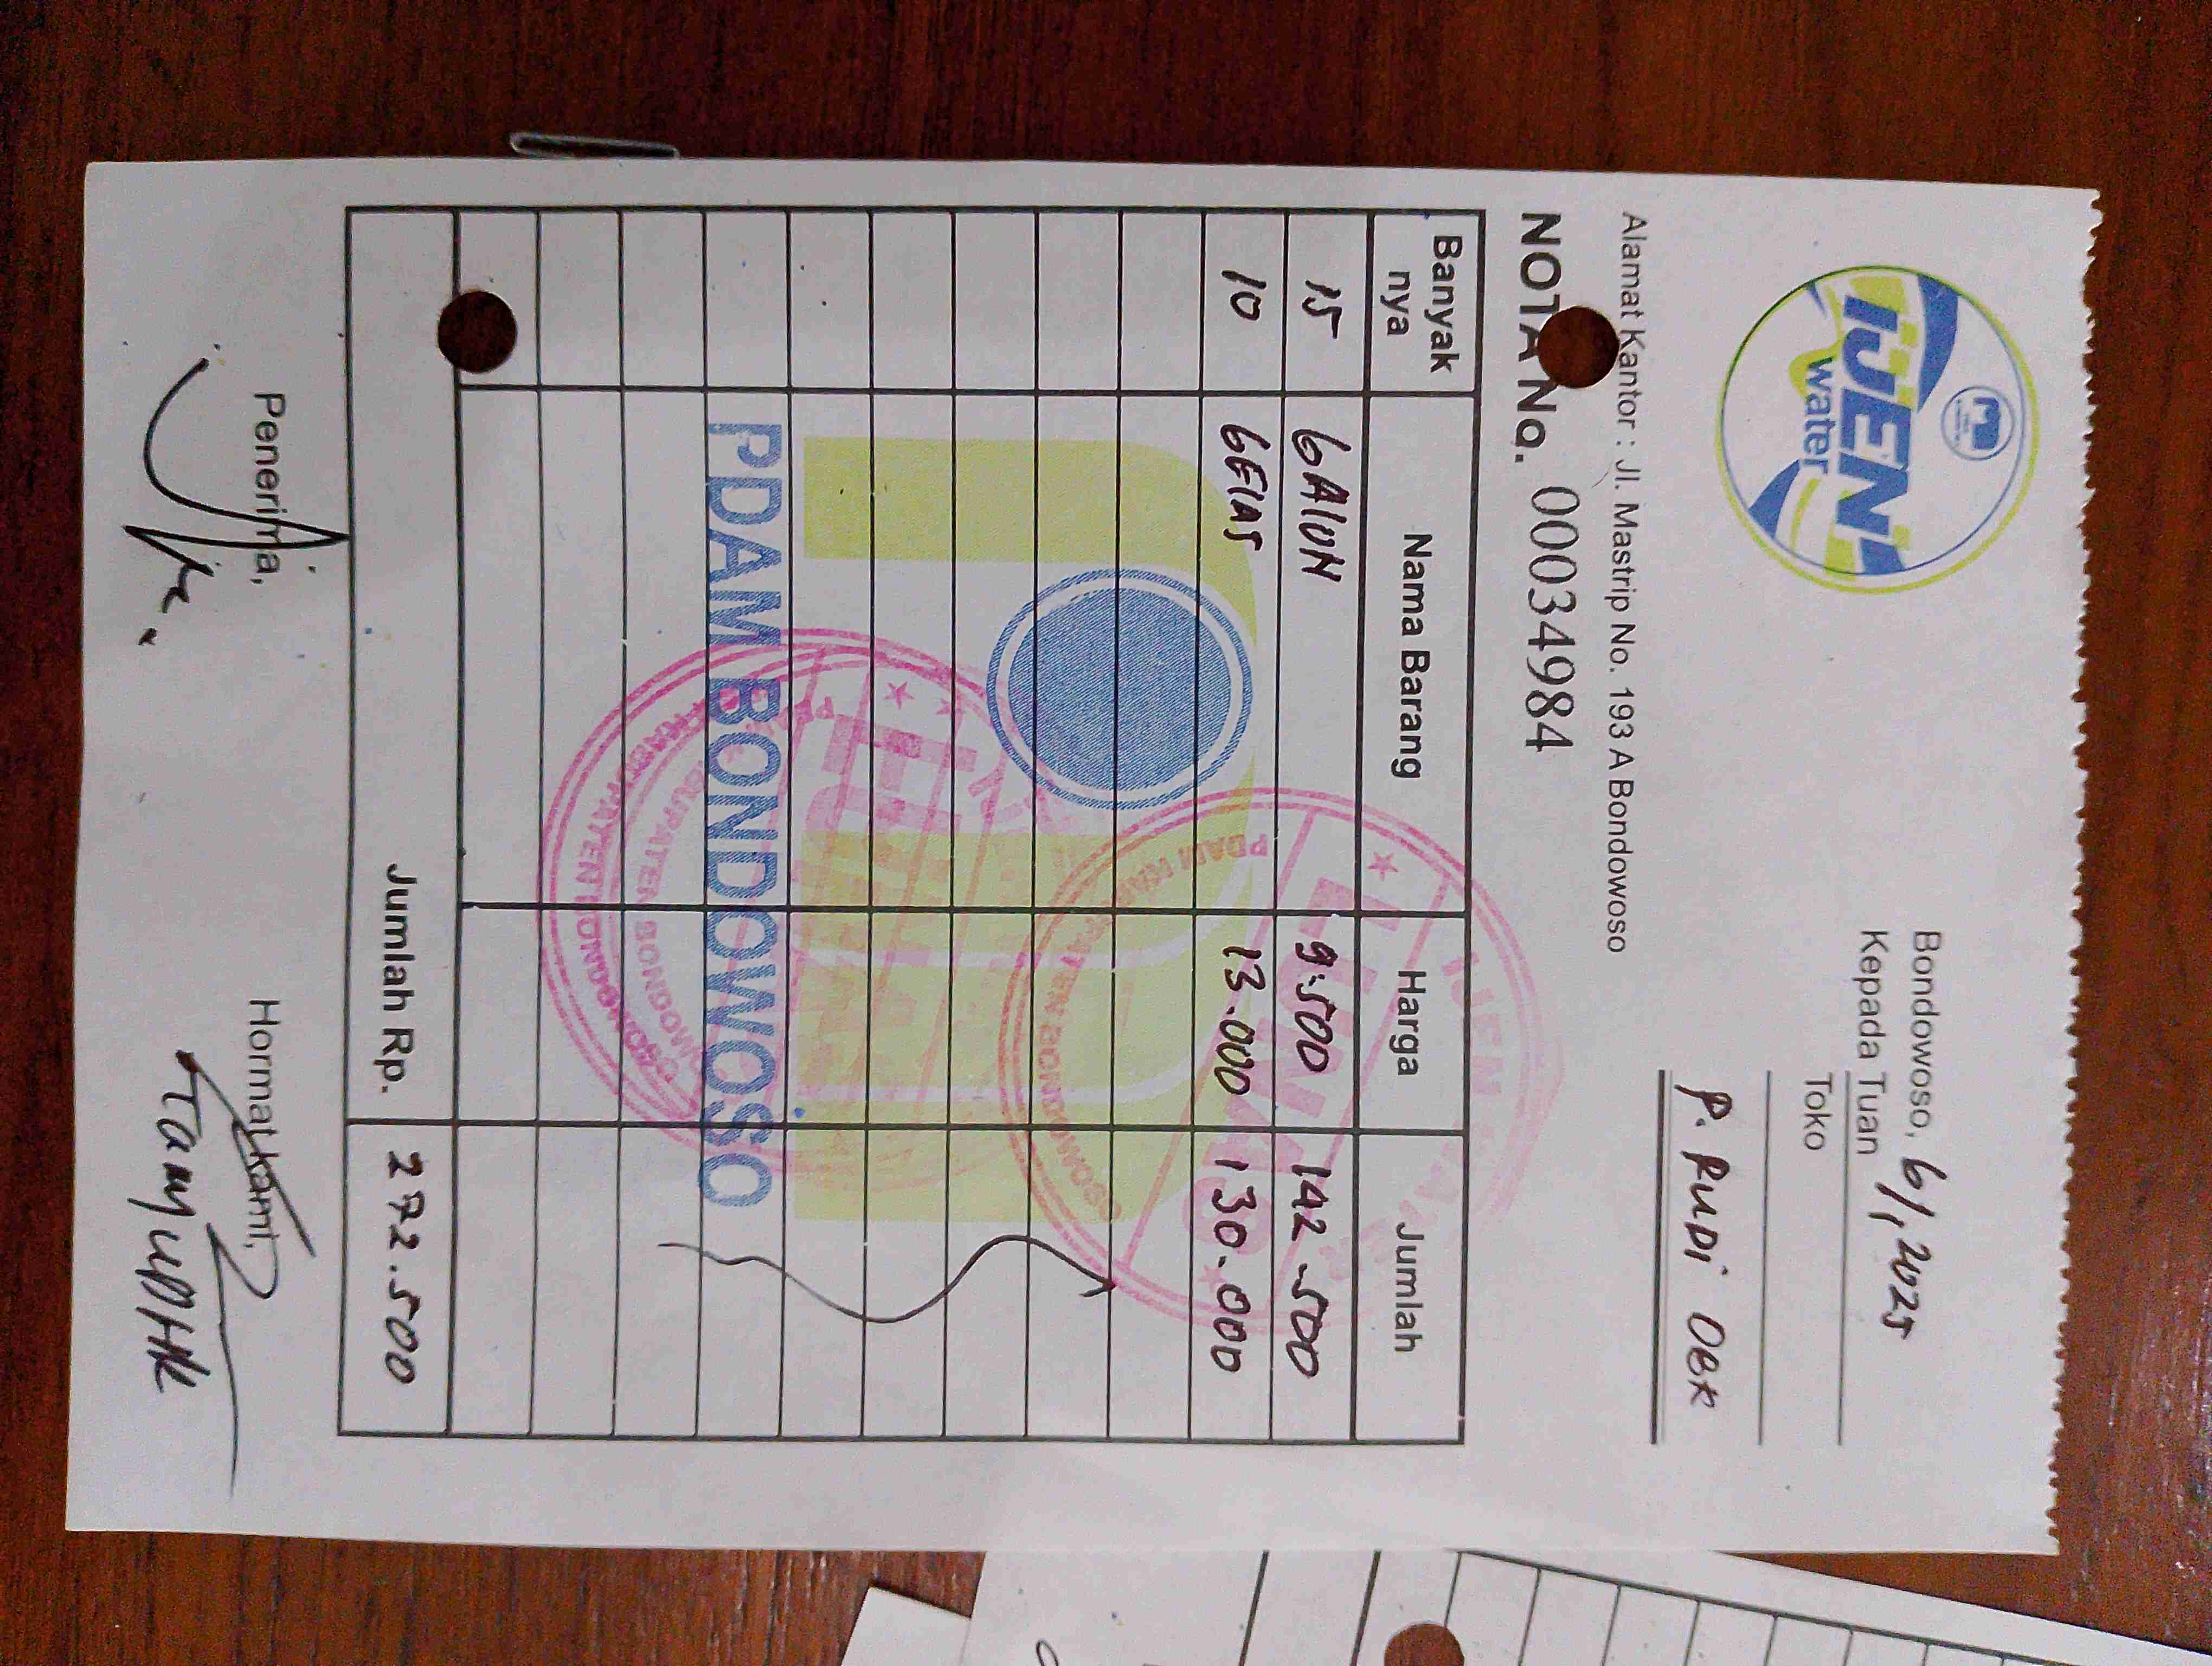 IJEN
water
Bondowoso, 6/1, 2025
Kepada Tuan
Toko
P. RUDI OBK
Alamat Kantor : Jl. Mastrip No. 193 A Bondowoso
NOTA No. 00034984
Banyak nya Nama Barang Harga Jumlah
15 GALON 9.500 142.500
10 GELAS 13.000 130.000
PDAM BONDOWOSO
IJEN WATER
LUNAS
PDAM KABUPATEN BONDOWOSO
LUNAS
KABUPATEN BONDOWOSO
Jumlah Rp. 272.500
Penerima, Hormat kami,